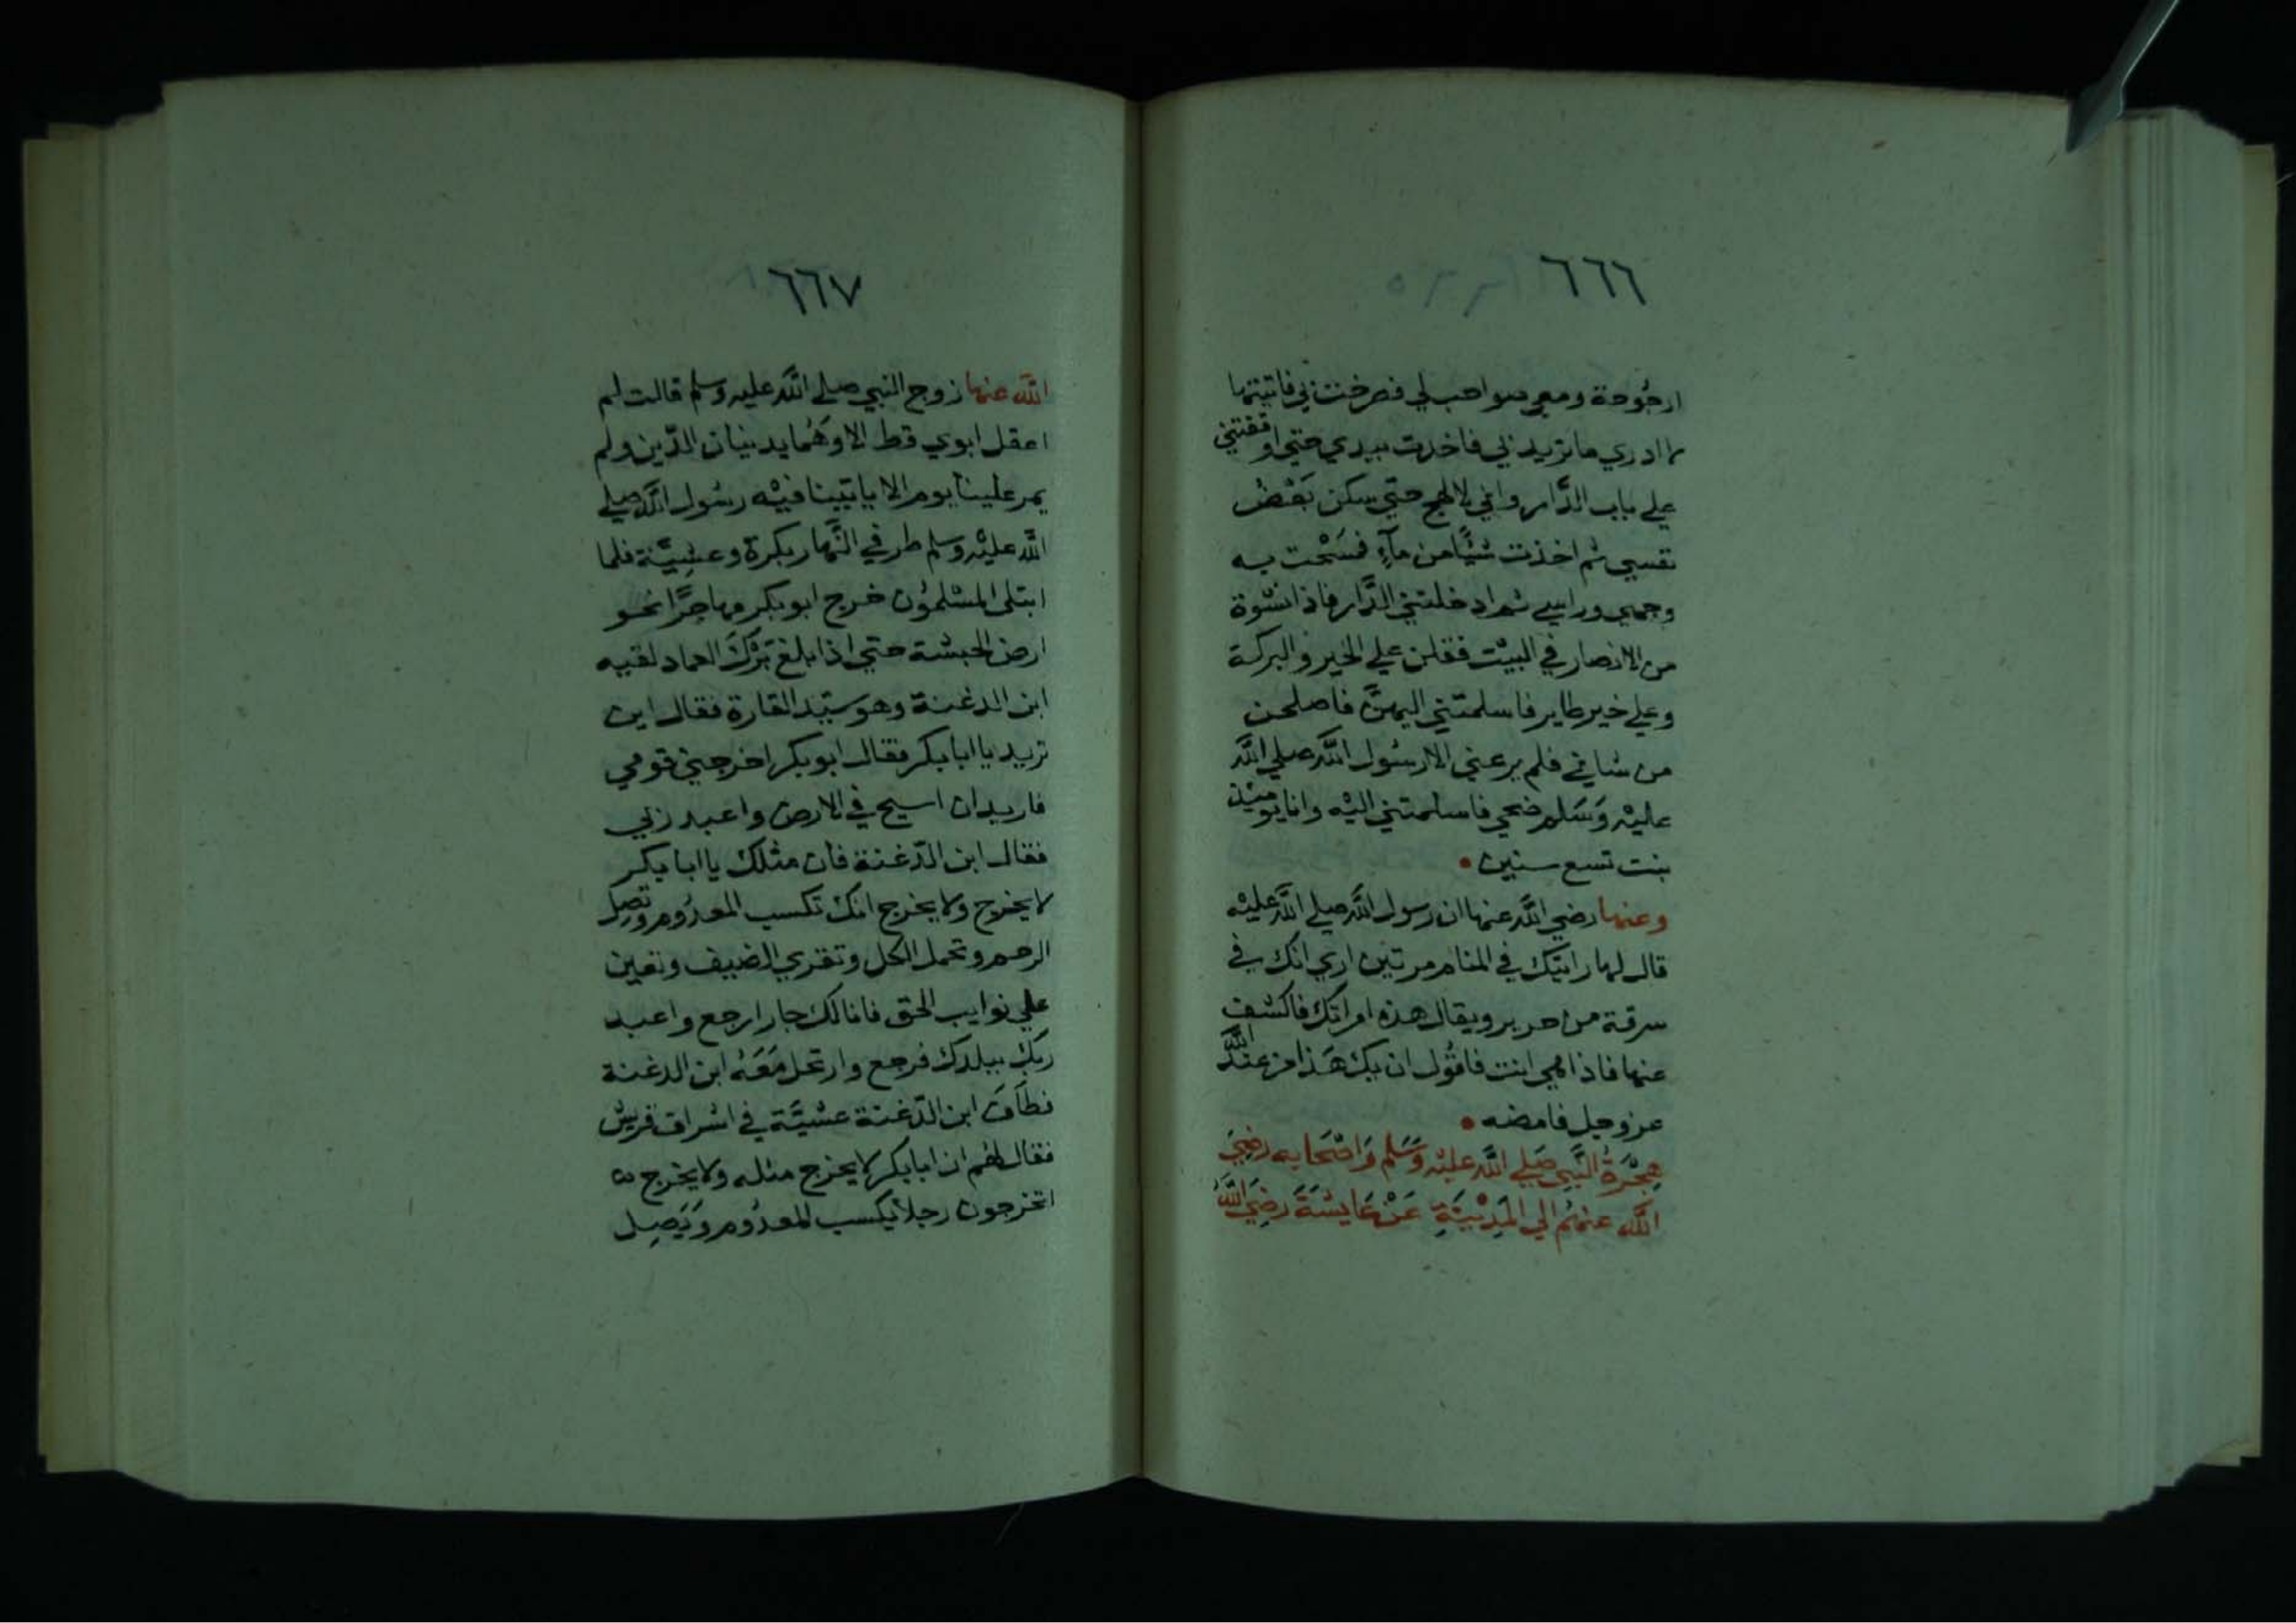 ٦٦٦
ارجوحة ومعي صواحب لي فصرخت بي فاتيتها
لا ادري ما تريد بي فاخذت بيدي حتي اوقفتني
علي باب الدَّار واني لانهج حتي سكن بَعْضُ
نفسي ثم اخذت شيًّا من مآءٍ فمسَحْت به
وجهي وراسي ثم ادخلتني الدَّار فاذا نسْوة
من الانصار في البيْت فقلن علي الخير والبركة
وعلي خير طاير فاسلمتني اليهنَّ فاصلحن
من شاني فلم يرعني الا رسُول اللَّه صلي اللَّه
عليْه وَسَلم ضحي فاسلمتني اليْه وانا يوْميْذ
بنت تسع سنين •
وعنها رضي اللَّه عنها ان رسول اللَّه صلي اللَّه عليْه
قال لها رايتك في المنام مرتين اري انك في
سرقة من حرير ويقال هذه امراتك فاكشف
عنها فاذا هي انت فاقُول ان يك هَذا من عند اللَّه
عز وجل فامضه •
هِجْرَةُ النَّبِي صَلي اللَّه عليْه وَسَلم وَاصْحَابه رضِيَ
اللَّه عنهُم الي المَدِيْنَةِ عَنْ عَايشَةَ رضِيَ اللَّهُ
٦٦٧
اللَّه عنها زوج النبي صلي اللَّه عليه وسلم قالت لم
اعقل ابوي قط الا وهُما يدينان الدّين ولم
يمر علينا يوم الا ياتينا فيْه رسُول اللَّه صلي
اللَّه عليْه وسلم طرفي النَّهار بكرة وعشِيَّة فلما
ابتلي المسْلمُون خرج ابو بكر مهاجرًا نحو
ارض الحبشة حتي اذا بلغ بَرْكَ الغماد لقيه
ابن الدغنة وهو سيّد القارة فقال اين
تريد يا ابا بكر فقال ابو بكر اخرجني قومي
فاريد ان اسيح في الارض واعبد ربي
فقال ابن الدّغنة فان مثلك يا ابا بكر
لا يخرج ولا يخرج انك تكسب المعدُوم وتصل
الرحم وتحمل الكل وتقري الضيف وتعين
علي نوايب الحق فانا لك جار ارجع واعبد
ربّك ببلدك فرجع وارتحل مَعَهُ ابن الدغنة
فطاف ابن الدّغنة عشيَّة في اشراف قريش
فقال لهُم ان ابا بكر لا يخرج مثله ولا يخرج
اتخرجون رجلا يكسب المعدُوم وَيَصِل